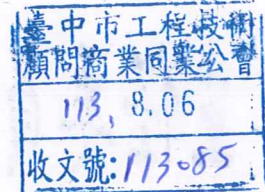 臺中市工程技術
顧問商業同業公會
113, 8.06
收文號:113085